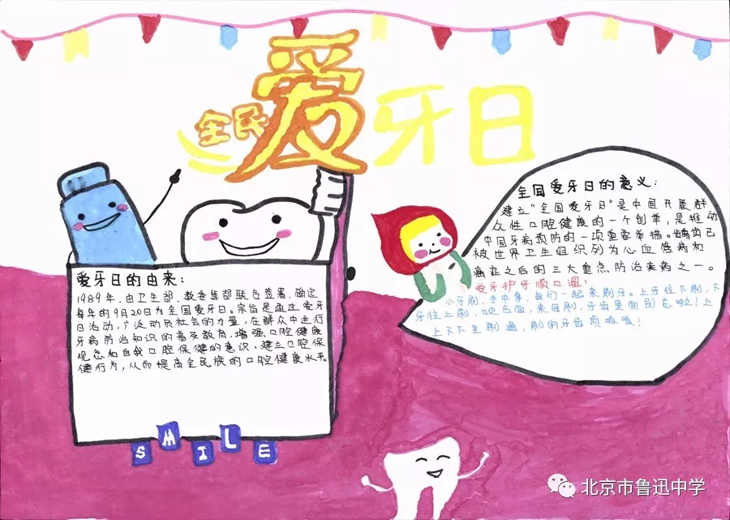 全民爱牙日
爱牙日的由来：
1989年，由卫生部、教委等部联合签署，确定
每年的9月20日为全国爱牙日。宗旨是通过爱牙
日活动，广泛动员社会的力量，在群众中进行
牙病防治知识的普及教育，增强口腔健康
观念和自我口腔保健的意识，建立口腔保
健行为，从而提高全民族的口腔健康水平。
SMILE
全国爱牙日的意义：
建立“全国爱牙日”是中国开展群
众性口腔健康的一个创举，是推动
中国牙病预防的一项重要举措。龋齿已
被世界卫生组织列为心血管病和
癌症之后的三大重点防治疾病之一。
爱牙护牙顺口溜：
小牙刷，手中拿，我们一起来刷牙。上牙往下刷，下
牙往上刷，咬合面，来回刷，牙齿里面
上上下下里刷遍，刷的牙齿
北京市鲁迅中学